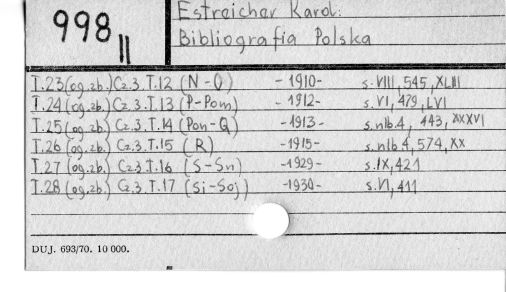 998 II
Estreicher Karol:
Bibliografia Polska
T.23 (og.zb.) Cz.3.T.12 (N-O) -1910- s.VIII,545,XLIII
T.24 (og.zb.) Cz.3.T.13 (P-Pom) -1912- s.VI,479,LVI
T.25 (og.zb.) Cz.3.T.14 (Pon-Q) -1913- s.nlb.4, 443, XXXVI
T.26 (og.zb.) Cz.3.T.15 (R) -1915- s.nlb 4,574,XX
T.27 (og.zb.) Cz3.T.16 (S-Sh) -1929- s.IX,421
T.28 (og.zb.) Cz.3.T.17 (Si-Soj) -1930- s.VI,411
DUJ. 693/70. 10 000.